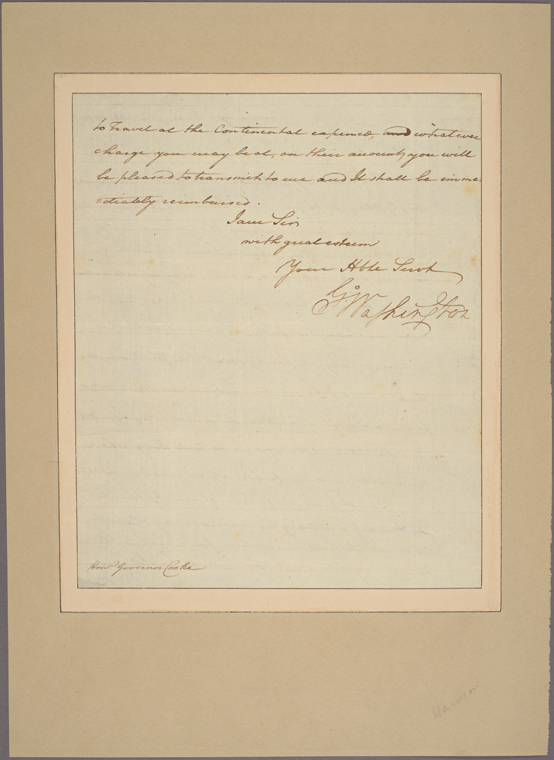 to Travel at the Continental expence, and whatever
charge you may be at, on their account, you will
be pleased to transmit to me and It shall be imme
diately reimbursed.
I am Sir
with great esteem
Your Hble Servt
G:Washington
Honl Governor Cooke